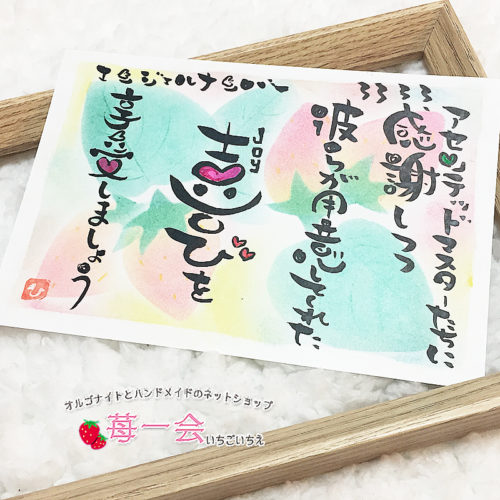 エンジェルナンバー
3333
アセンデッドマスターたちに
感謝しつつ
彼らが用意してくれた
Joy
喜びを
享受しましょう
オルゴナイトとハンドメイドのネットショップ
苺一会
いちごいちえ